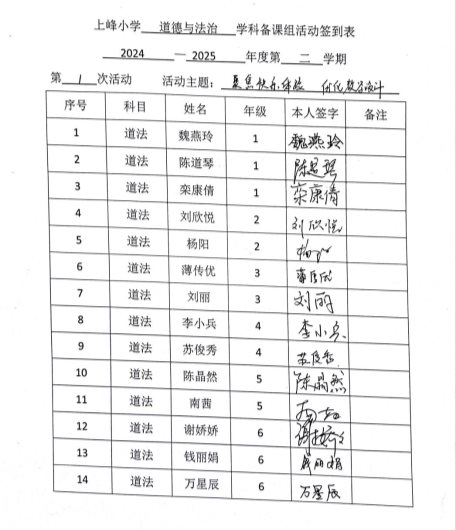 上峰小学 道德与法治 学科备课组活动签到表
2024 — 2025 年度第 二 学期
第 1 次活动 活动主题: 聚焦快乐体验 优化教学设计
序号 科目 姓名 年级 本人签字 备注
1 道法 魏燕玲 1 魏燕玲
2 道法 陈道琴 1
3 道法 栾康倩 1 栾康倩
4 道法 刘欣悦 2 刘欣悦
5 道法 杨阳 2
6 道法 薄传优 3
7 道法 刘丽 3 刘丽
8 道法 李小兵 4 李小兵
9 道法 苏俊秀 4
10 道法 陈晶然 5 陈晶然
11 道法 南茜 5
12 道法 谢娇娇 6
13 道法 钱丽娟 6 钱丽娟
14 道法 万星辰 6 万星辰